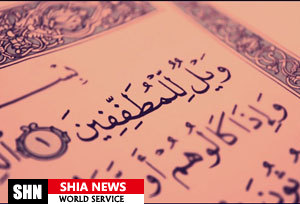 بِسْـ
وَيْلٌ لِّلْمُطَفِّفِينَ ١
وَإِذَا كَالُوهُمْ أَو
SHN
SHIA NEWS
WORLD SERVICE